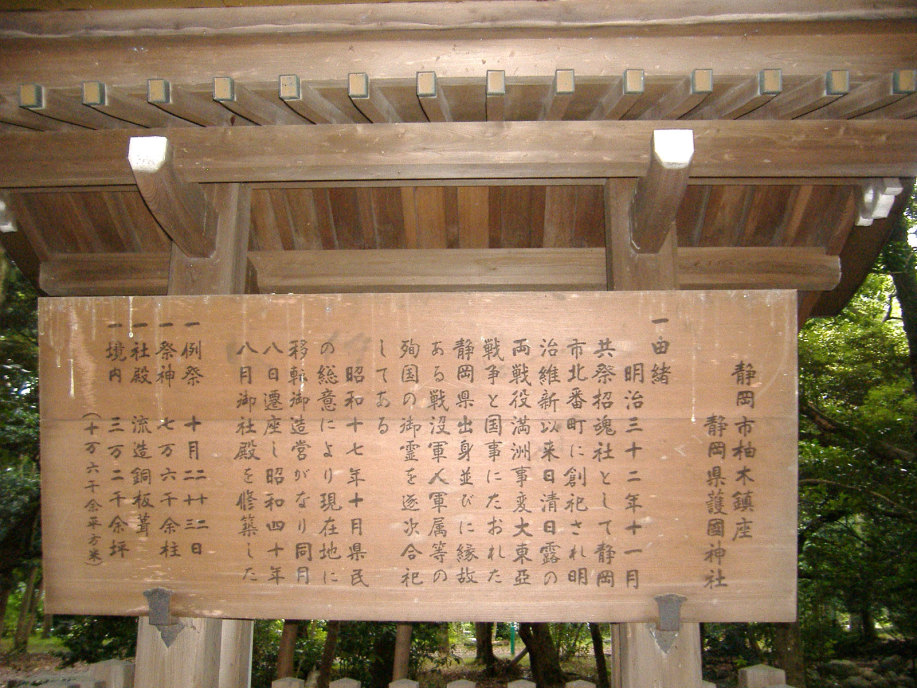 静岡市柚木鎮座
静岡県護國神社
一由緒
明治三十二年十一月
共祭招魂社として静岡
市北番町に創祀され明
治維新以来日清日露の
両戦役満洲事変大東亞
戦争と国事にたおれた
静岡県出身並びに縁故
ある戦没軍人軍属等の
殉国の御霊を逐次合祀
してある
昭和十七年十月県民
の総意により現在地に
移転御造営がなり同月
八日遷座し昭和四十年
八月御社殿を修築した
一例祭 十月二十二 二十三日
一祭神 七万六千余柱
一社殿 流造銅板葺
一境内 三万二千余坪
(十万六千余平方米)